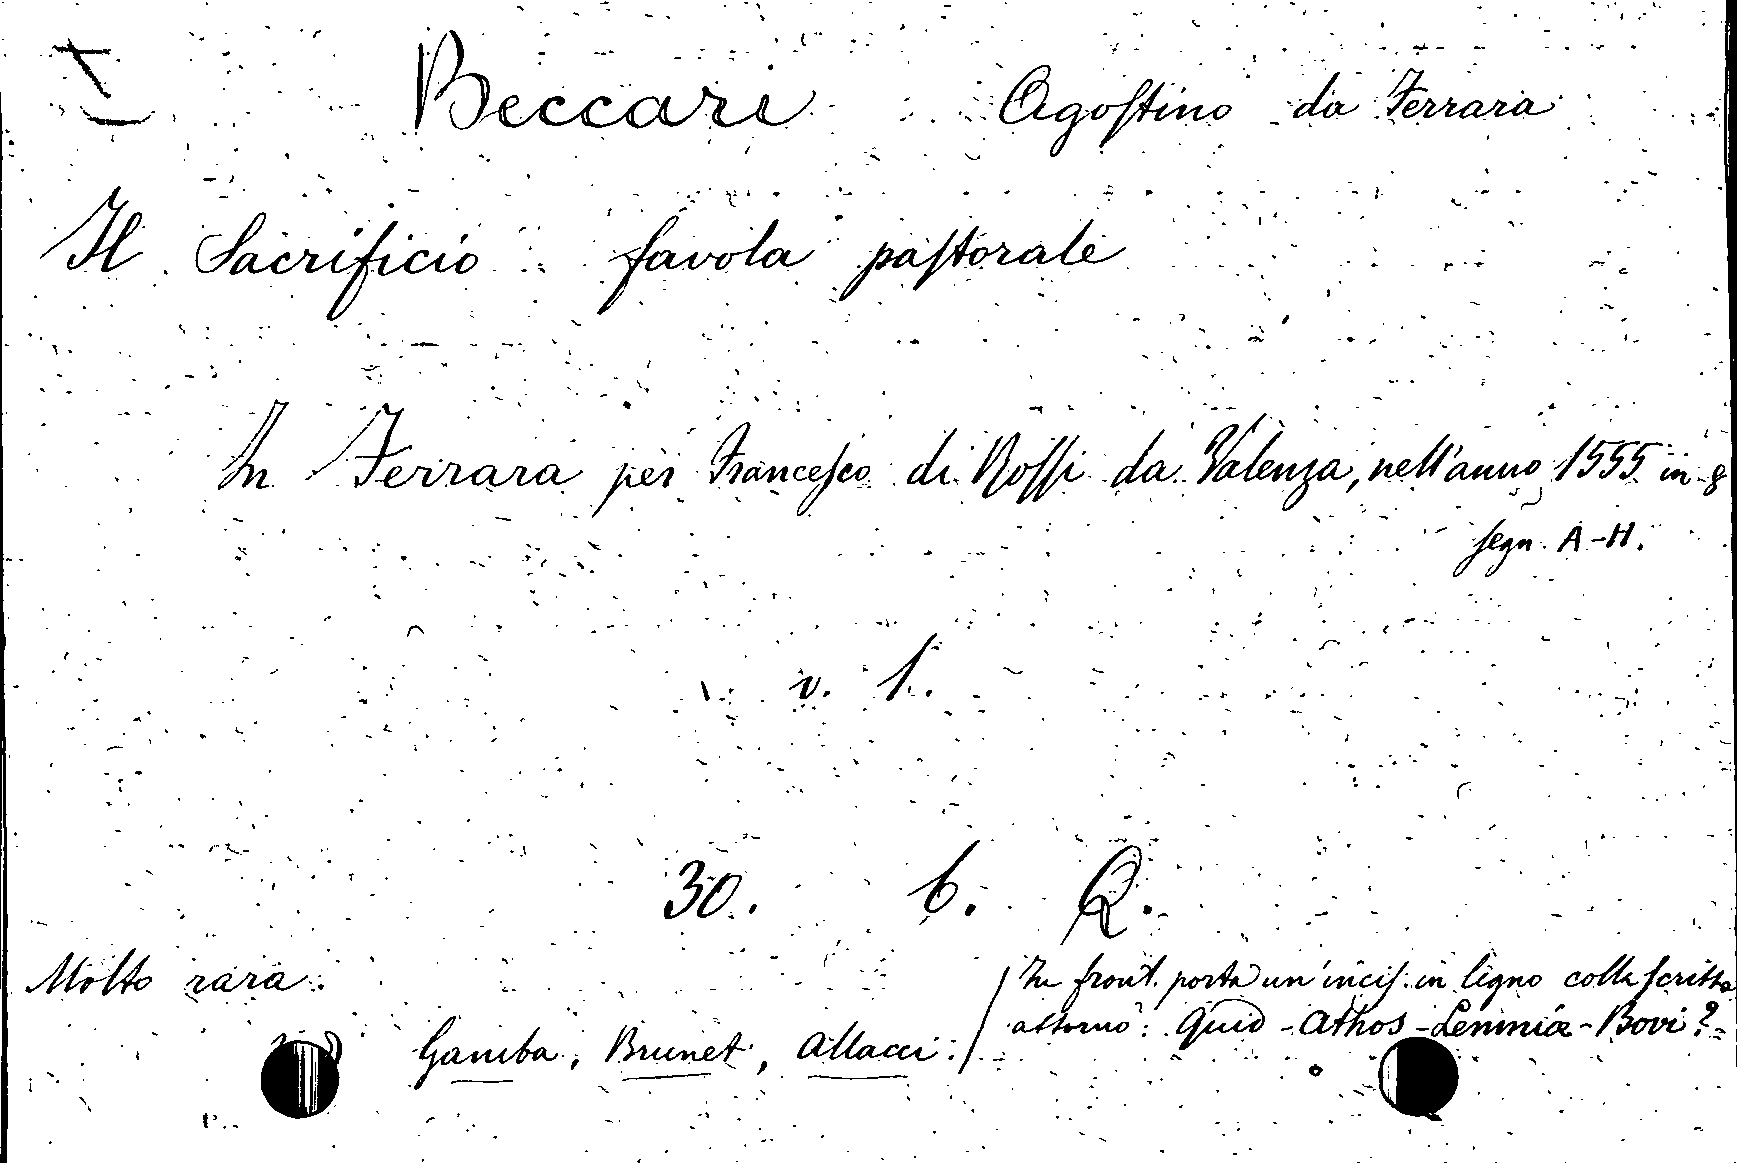 Beccari Agostino da Ferrara
Il Sacrificio favola pastorale
In Ferrara per Francesco di Rossi da Valenza, nell'anno 1555 in 8
segn. A-H.
v. 1.
30. 6. Q.
Molto rara.
In front. porta un'incis. in ligno colla scritta
attorno: Quid - Athos - Lenmia - Bovi?
Gamba, Brunet, Allacci.